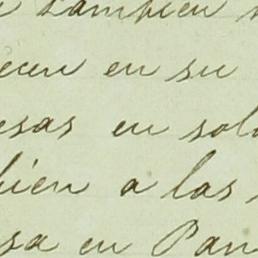 tambien
ecen en su
esas en sol
bien a las
sa en Pan